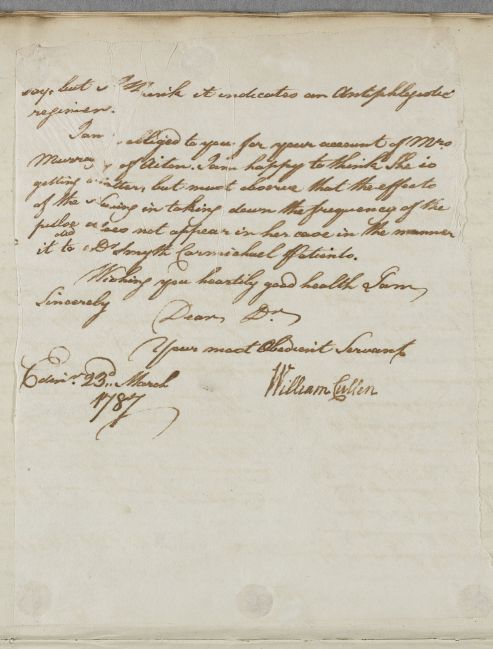 say, but I think it indicates an Antiphlogistic
regimen.
I am obliged to you for your account of Mrs
Murray of Aiton. I am happy to think She is
getting better, but must observe that the effects
of the Swing in taking down the frequency of the
pulse does not appear in her case in the manner
it did to Dr Smyth Carmichael Patients.
Wishing you heartily good health I am
Sincerely
Dear Dr
Your most Obedient Servant
Edinr. 23d. March
William Cullen
1787